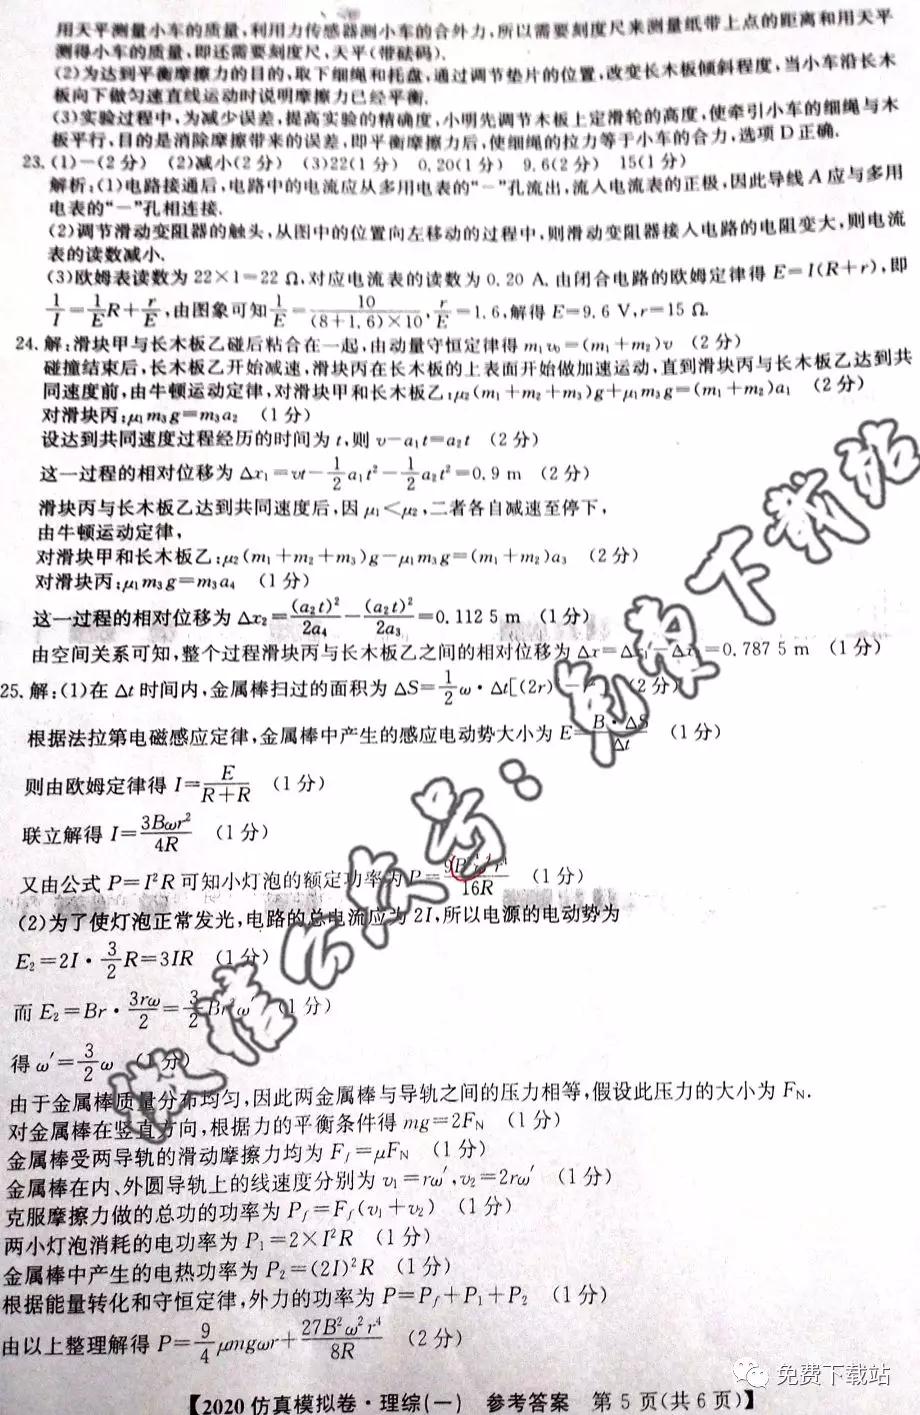 用天平测量小车的质量,利用力传感器测小车的合外力,所以需要刻度尺来测量纸带上点的距离和用天平
测得小车的质量,即还需要刻度尺,天平(带砝码).
(2)为达到平衡摩擦力的目的,取下细绳和托盘,通过调节垫片的位置,改变长木板倾斜程度,当小车沿长木
板向下做匀速直线运动时说明摩擦力已经平衡.
(3)实验过程中,为减少误差,提高实验的精确度,小明先调节木板上定滑轮的高度,使牵引小车的细绳与木
板平行,目的是消除摩擦带来的误差,即平衡摩擦力后,使细绳的拉力等于小车的合力,选项D正确.
23.(1)一(2分) (2)减小(2分) (3)22(1分) 0.20(1分) 9.6(2分) 15(1分)
解析:(1)电路接通后,电路中的电流应从多用电表的“一”孔流出,流入电流表的正极,因此导线A应与多用
电表的“一”孔相连接.
(2)调节滑动变阻器的触头,从图中的位置向左移动的过程中,则滑动变阻器接入电路的电阻变大,则电流
表的读数减小.
(3)欧姆表读数为22×1=22 Ω,对应电流表的读数为0.20 A.由闭合电路的欧姆定律得E=I(R+r),即
1/I=1/E R+r/E,由图象可知1/E=10/((8+1.6)×10),r/E=1.6,解得E=9.6 V,r=15 Ω.
24.解:滑块甲与长木板乙碰后粘合在一起,由动量守恒定律得m₁v₀=(m₁+m₂)v (2分)
碰撞结束后,长木板乙开始减速,滑块丙在长木板的上表面开始做加速运动,直到滑块丙与长木板乙达到共
同速度前,由牛顿运动定律,对滑块甲和长木板乙:μ₂(m₁+m₂+m₃)g+μ₁m₃g=(m₁+m₂)a₁ (2分)
对滑块丙:μ₁m₃g=m₃a₂ (1分)
设达到共同速度过程经历的时间为t,则v-a₁t=a₂t (2分)
这一过程的相对位移为Δx₁=vt-1/2 a₁t²-1/2 a₂t²=0.9 m (2分)
滑块丙与长木板乙达到共同速度后,因μ₁<μ₂,二者各自减速至停下,
由牛顿运动定律,
对滑块甲和长木板乙:μ₂(m₁+m₂+m₃)g-μ₁m₃g=(m₁+m₂)a₃ (2分)
对滑块丙:μ₁m₃g=m₃a₄ (1分)
这一过程的相对位移为Δx₂=(a₂t)²/2a₄-(a₂t)²/2a₃=0.112 5 m (1分)
由空间关系可知,整个过程滑块丙与长木板乙之间的相对位移为Δx=Δx₁-Δx =0.787 5 m (1分)
25.解:(1)在Δt时间内,金属棒扫过的面积为ΔS=1/2 ω·Δt[(2r) (2分)
根据法拉第电磁感应定律,金属棒中产生的感应电动势大小为E=B·ΔS/Δt (1分)
则由欧姆定律得I=E/(R+R) (1分)
联立解得I=3Bωr²/4R (1分)
又由公式P=I²R可知小灯泡的额定功率为P= /16R (1分)
(2)为了使灯泡正常发光,电路的总电流应为2I,所以电源的电动势为
E₂=2I·3/2 R=3IR (1分)
而E₂=Br·3rω/2=3/2 Br²ω′ (1分)
得ω′=3/2 ω (1分)
由于金属棒质量分布均匀,因此两金属棒与导轨之间的压力相等,假设此压力的大小为Fɴ.
对金属棒在竖直方向,根据力的平衡条件得mg=2Fɴ (1分)
金属棒受两导轨的滑动摩擦力均为Ff=μFɴ (1分)
金属棒在内、外圆导轨上的线速度分别为v₁=rω′,v₂=2rω′ (1分)
克服摩擦力做的总功的功率为Pf=Ff(v₁+v₂) (1分)
两小灯泡消耗的电功率为P₁=2×I²R (1分)
金属棒中产生的电热功率为P₂=(2I)²R (1分)
根据能量转化和守恒定律,外力的功率为P=Pf+P₁+P₂ (1分)
由以上整理解得P=9/4 μmgωr+27B²ω²r⁴/8R (2分)
微信公众号:免费下载站
免费下载站
【2020仿真模拟卷·理综(一) 参考答案 第5页(共6页)】